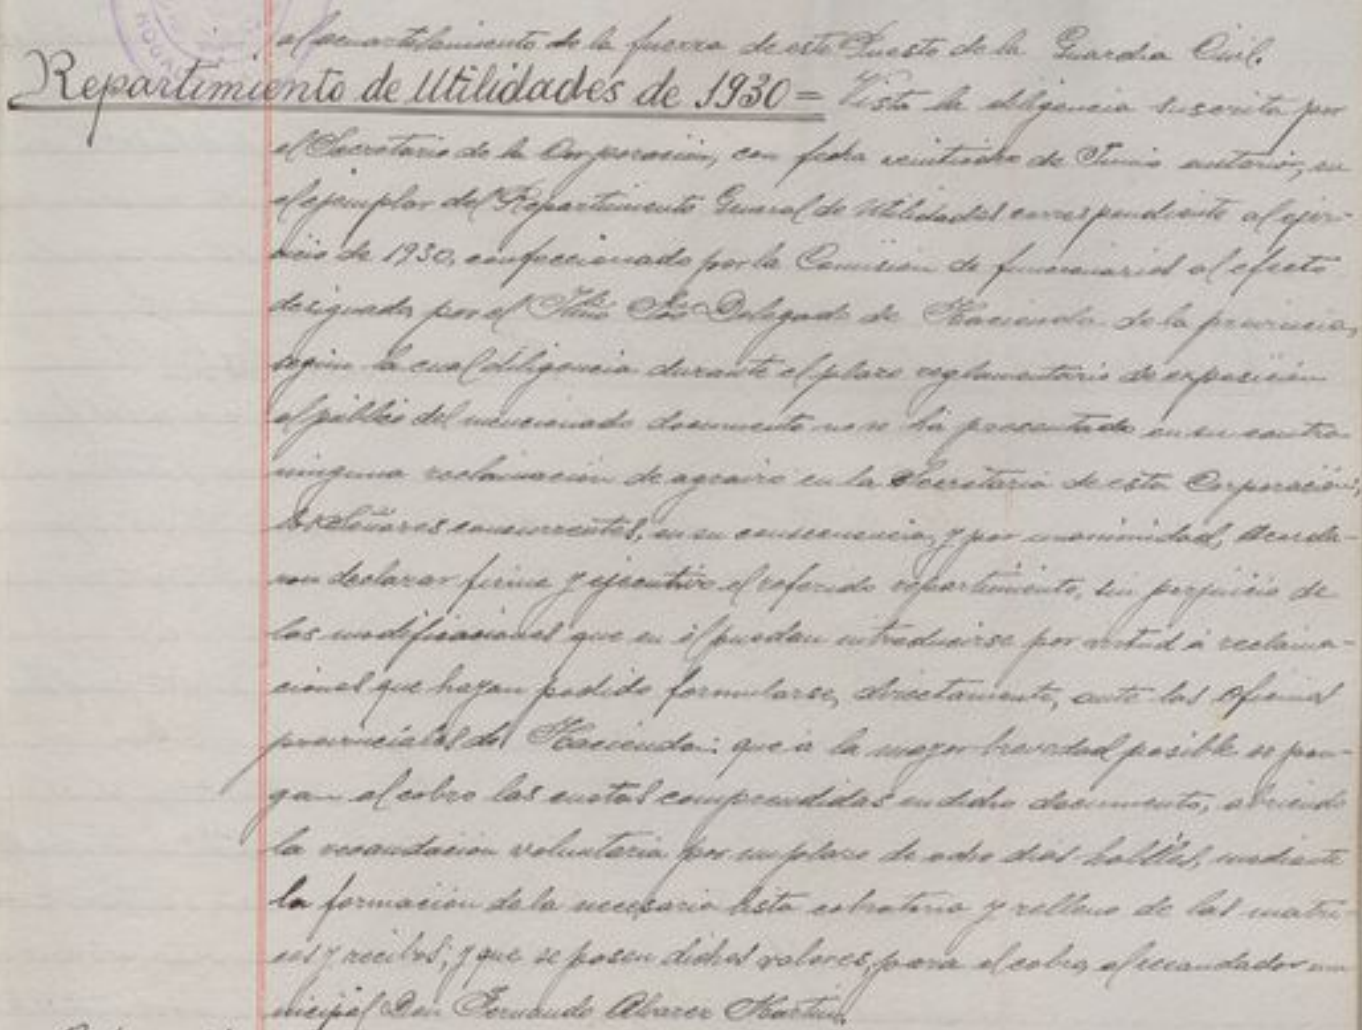 al acuartelamiento de la fuerza de este Puesto de la Guardia Civil.
Repartimiento de Utilidades de 1930 = Vista la diligencia suscrita por
el Secretario de la Corporación, con fecha veintiocho de Junio anterior, en
el ejemplar del Repartimiento General de Utilidades correspondiente al ejer-
cicio de 1930, confeccionado por la Comisión de funcionarios al efecto
designada por el Iltmo Sor Delegado de Hacienda de la provincia,
según la cual diligencia durante el plazo reglamentario de exposición
al público del mencionado documento no se ha presentado en su contra
ninguna reclamación de agravio en la Secretaría de esta Corporación;
los Señores concurrentes, en su consecuencia, y por unanimidad, acorda-
ron declarar firme y ejecutivo el referido repartimiento, sin perjuicio de
las modificaciones que en él puedan introducirse por virtud á reclama-
ciones que hayan podido formularse, directamente, ante las oficinas
provinciales de Hacienda: que á la mayor brevedad posible se pon-
gan al cobro las cuotas comprendidas en dicho documento, abriendo
la recaudación voluntaria por un plazo de ocho días hábiles, mediante
la formación de la necesaria lista cobratoria y relleno de las matri-
ces y recibos; y que se pasen dichos valores, para el cobro, al recaudador mu-
nicipal Don Fernando Alvarez Martin.